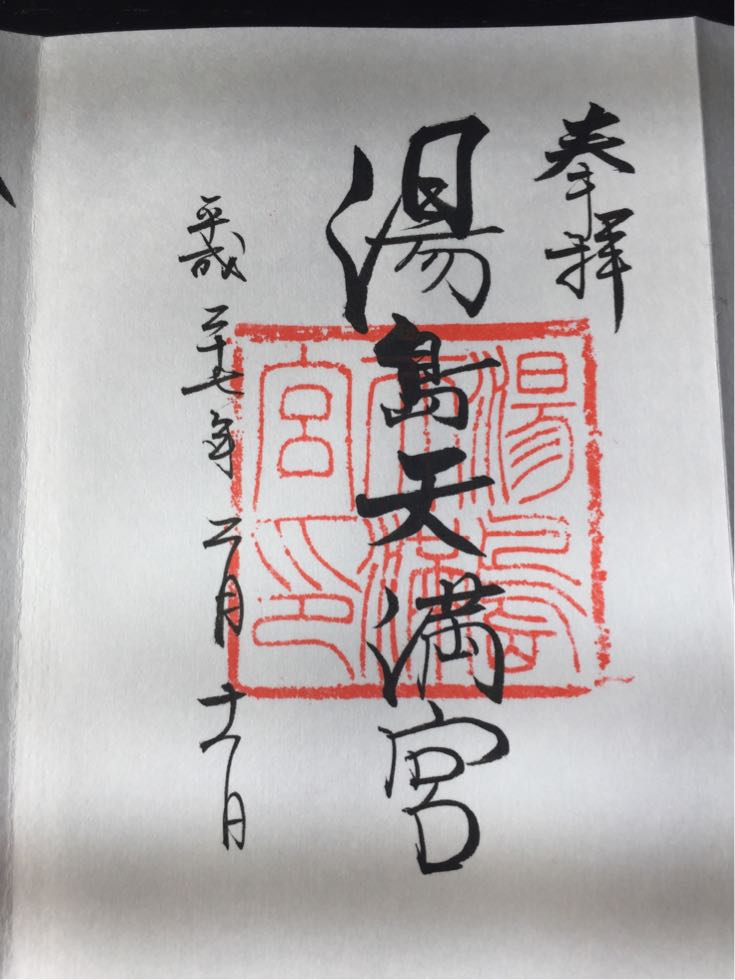 奉拝
湯島天満宮
平成二十七年二月十八日
湯島
天満
宮印